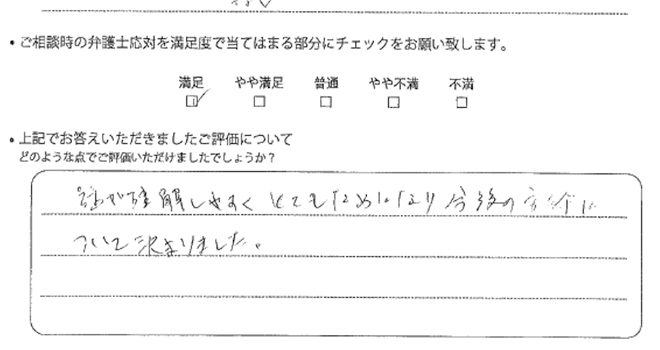 • ご相談時の弁護士応対を満足度で当てはまる部分にチェックをお願い致します。
満足 やや満足 普通 やや不満 不満
• 上記でお答えいただきましたご評価について
どのような点でご評価いただけましたでしょうか？
話が理解しやすく とてもためになり 今後の方針に
ついて決まりました。